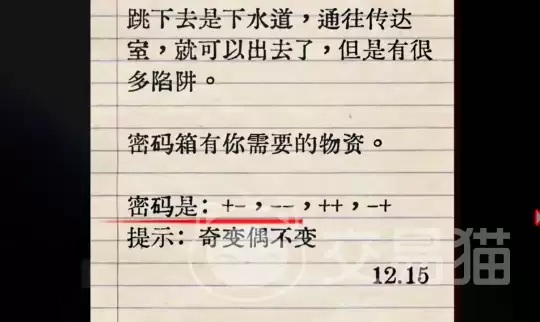 跳下去是下水道，通往传达
室，就可以出去了，但是有很
多陷阱。
密码箱有你需要的物资。
密码是：+-，--，++，-+
提示：奇变偶不变
12.15
交易猫